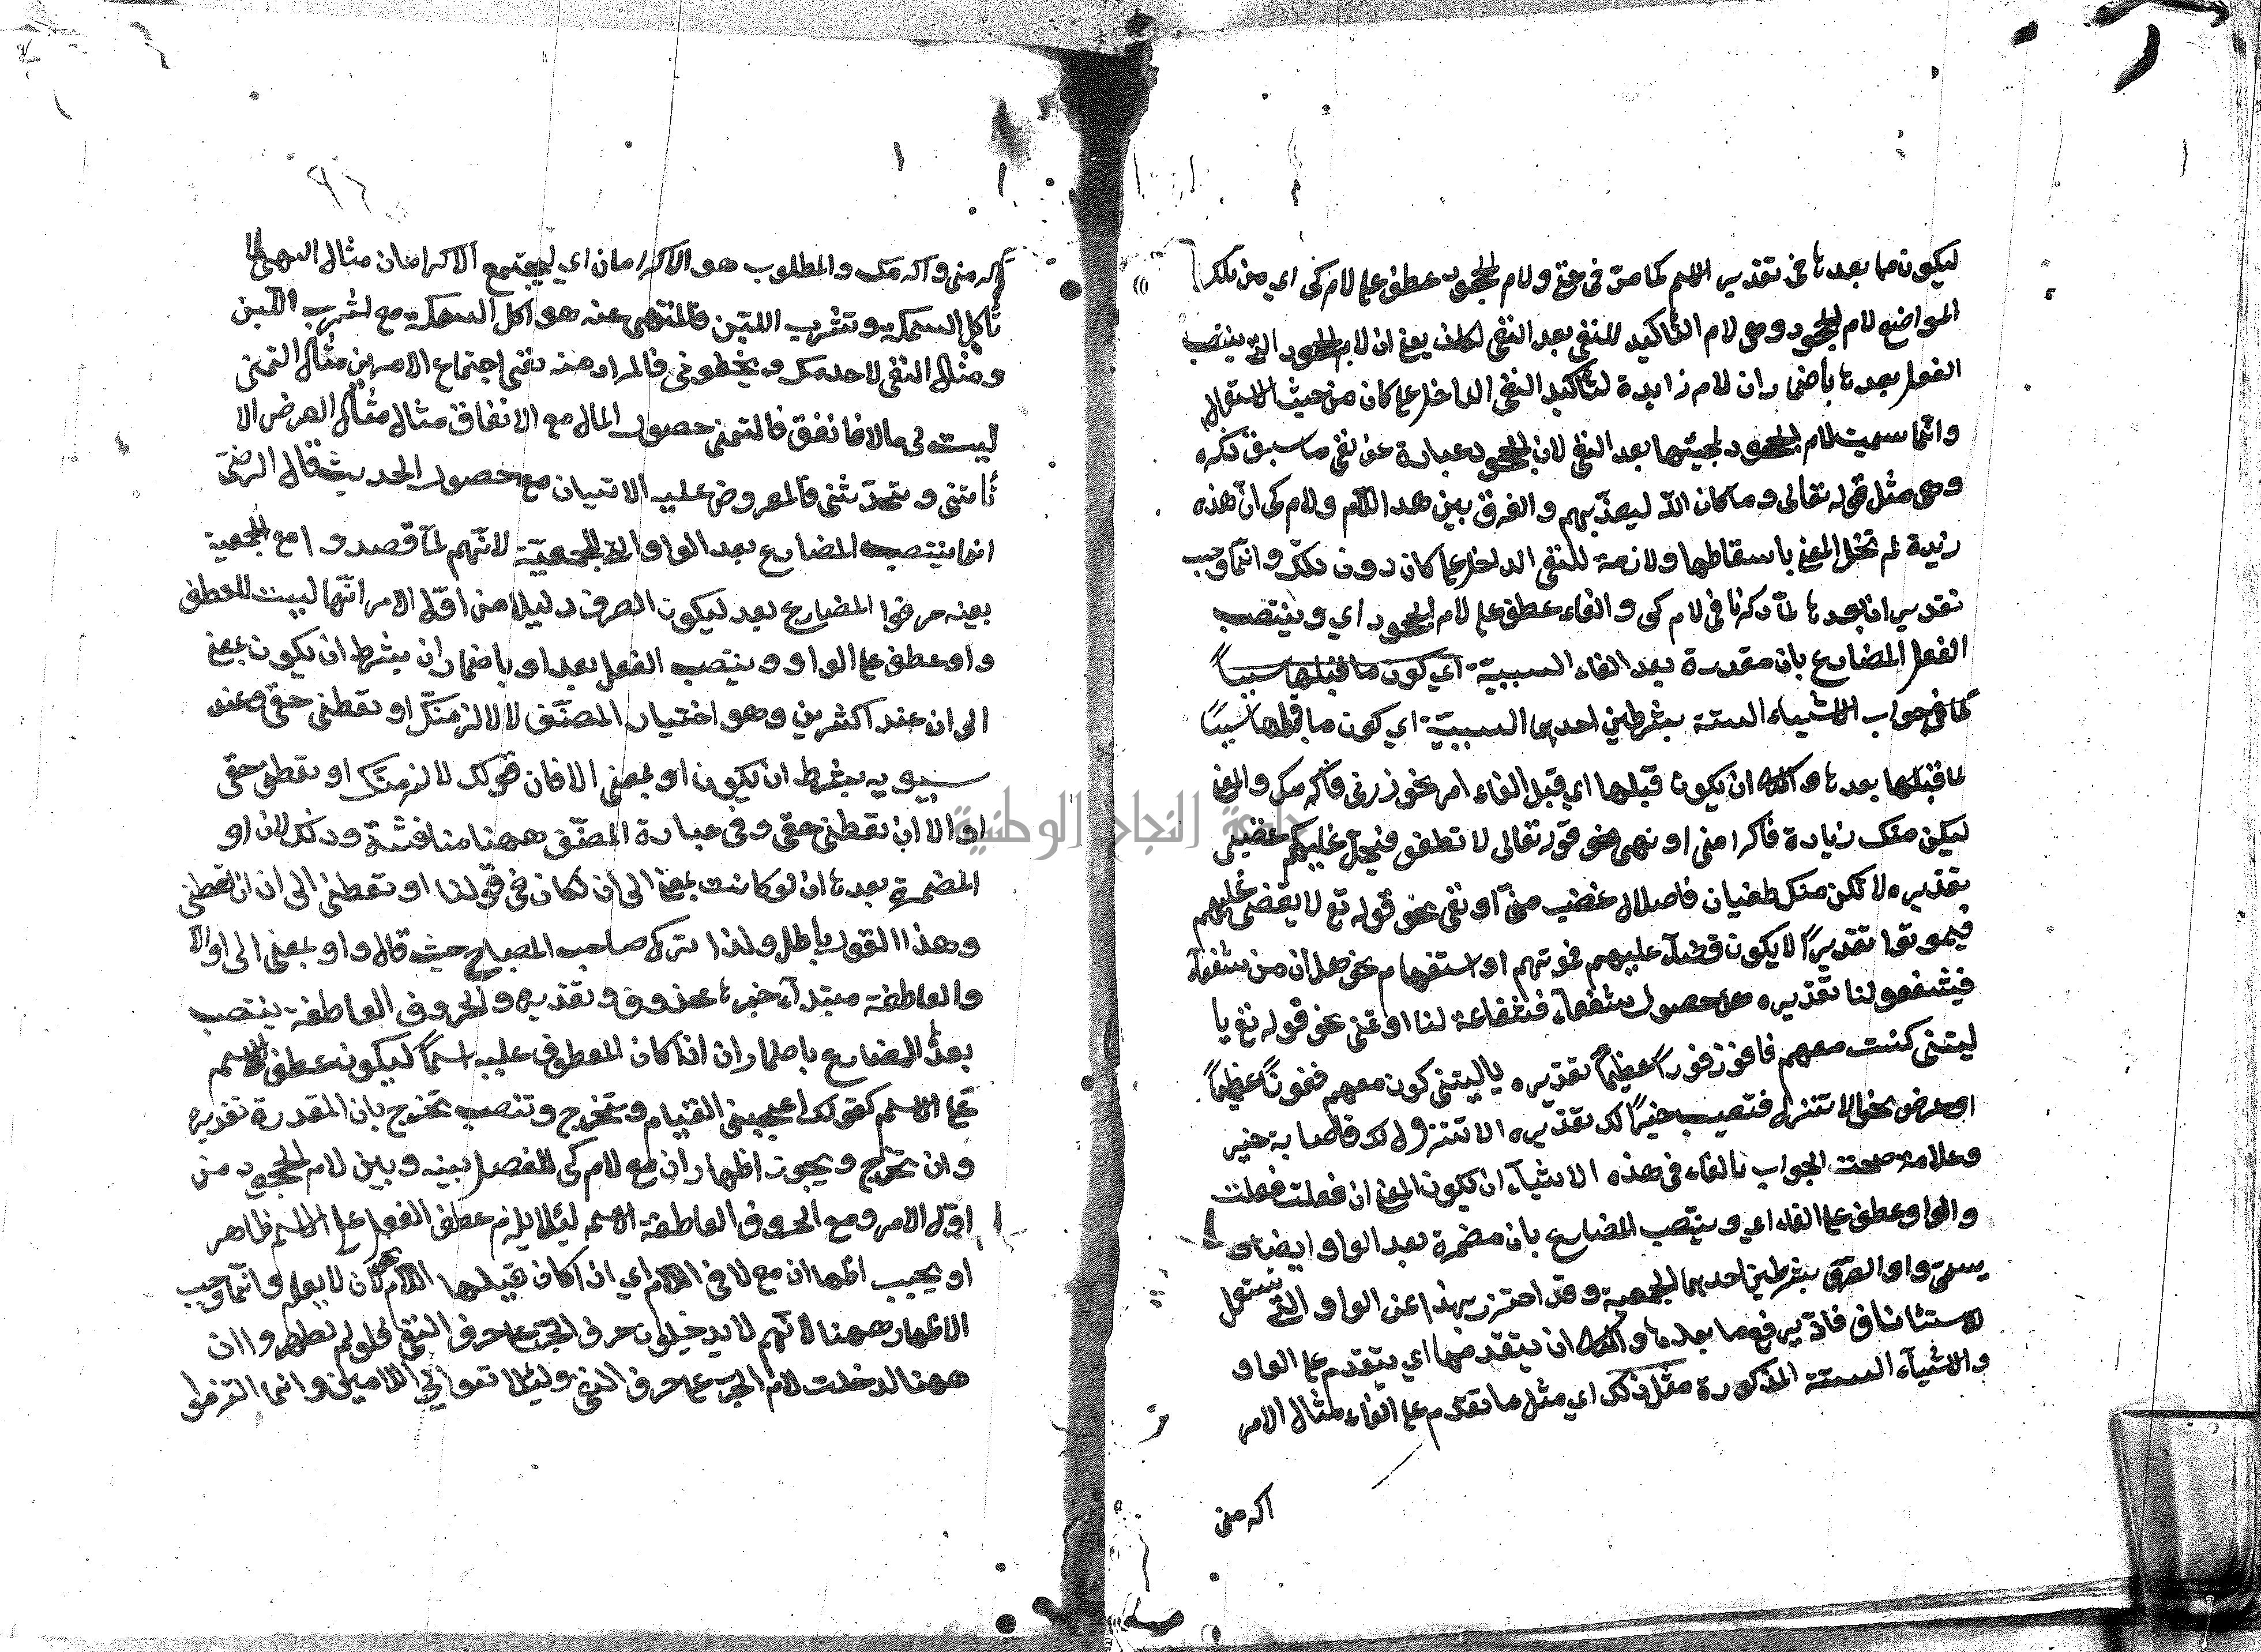 ليكون ما بعدها في تقدير الاسم كما مر في نحو ولام الجحود عطف على لام كي اي من تلك
المواضع لام الجحود وهي لام التأكيد للنفي بعد النفي لكان يعني ان لام الجحود التي ينتصب
الفعل بعدها بأضمار ان لام زايدة لتأكيد النفي الداخل على كان من حيث الاستعمال
وانما سميت لام الجحود لمجيئها بعد النفي لان الجحود عبارة عن نفي ما سبق ذكره
وهي مثل قوله تعالى وما كان الله ليعذبهم والفرق بين هذا اللام ولام كي ان هذه
زيدة لم تخل المعنى باسقاطها ولازمة للنفي الداخل على كان دون تلك وانما وجب
تقدير ان بعدها لما ذكرنا في لام كي والفاء عطف على لام الجحود اي وينتصب
الفعل المضارع بان مقدرة بعد الفاء السببية اي كون ما قبلها سببا
كما في جواب الاشياء الستة بشرطين احدهما السببية اي كون ما قبلها سببا
لما قبلها بعدها والثاني ان يكون قبلها اي قبل الفاء امر نحو زرني فأكرمك والمعنى
ليكن منك زيادة فاكرامني او نهي نحو قوله تعالى لا تطغو فيحل عليكم غضبي
تقديره لا تكن منك طغيان فاصلال غضب مني او نفي نحو قوله تع لا يقضى عليهم
فيموتوا تقديرًا لا يكون قضآء عليهم فموتهم او استفهام نحو هل ان من شفعآء
فيشفعو لنا تقديره هل حصول شفعآء فشفاعة لنا او تمني نحو قوله تع يا
ليتني كنت معهم فافوز فوزا عظيما تقديره يا ليتني كون معهم ففوزًا عظيمًا
او عرض نحو الا تنزل فتصيب خيرًا لك تقديره الا تنزول لك فاصابة خير
وعلامة صحت الجواب بالفاء في هذه الاشيآء ان يكون المعنى ان فعلت فعلت
والواو عطف على الفاء اي وينتصب المضارع بان مضمرة بعد الواو ايضا و
يسمى واو الصرف بشرطين احدهما الجمعية وقد احترز بهذا عن الواو التي تستعمل
للاستئناف فانه يرفع ما بعدها والثاني ان يتقدمها اي يتقدم على الواو
والاشيآء الستة المذكورة مثل ذلك اي مثل ما تقدم على الفاء مثال الامر
اكرمني
اكرمني وأكرمك والمطلوب هو الاكرامان اي ليجتمع الاكرامان مثال النهي لا
تأكل السمكة وتشرب اللبن فالمنتهى عنه هو اكل السمكة مع لشرب اللبن
ومثال النفي لاحدمك ويخطوني فالمراد منه نفي اجتماع الامرين مثال التمني
ليت لي مالا فانفق فالتمني حصول المال مع الانفاق مثال مثال العرض الا
تأتني وتحدثني فالمعروض عليه الاتيان مع حصول الحديث قال الرضي
انما ينتصب المضارع بعد الواو التي للجمعية لانهم لما قصدوا مع الجمعية
بعينه صرفوا المضارع بعد ليكون الصرف دليلا من اول الامر انها ليست للعطف
واو عطف على الواو وينتصب الفعل بعد او باضمار ان بشرط ان يكون بمعنى
الى ان عند اكثرين وهو اختيار المصنف لا لالزمنك او تعطني حقي وعند
سيبويه بشرط ان يكون او بمعنى الا فان قولك لالزمنك او تعطني حقي
او الا ان تعطني حقي وفي عبارة المصنف ههنا منافشة وذلك لان او
المضمرة بعدها ان لو كانت بمعنى الى ان لكان في قولنا او تعطني الى ان ان تعطني
وهذا القول باطل ولذا ترك صاحب المصباح حيث قال واو بمعنى الى او الا
والعاطفة مبتدآء خبرها محذوف وتقديره والحروف العاطفة ينتصب
بعد المضارع باضمار ان اذا كان المعطوف عليه اسمًا ليكون عطف الاسم
على الاسم كقولك اعجبني القيام وتخرج وتنصب تخرج بان المقدرة تقديره
وان تخرج ويجوز اظهار ان مع لام كي للفصل بينه وبين لام الجحود من
اول الامر ومع الحروف العاطفة الاسم ليئلا يلزم عطف الفعل على الاسم ظاهر
او يجيب اظهاران مع لا في اللام اي اذا كان قبلها اللام نحو لأن لا يعلم وانما وجب
الاظهار ههنا لأنهم لا يدخيلون حرف الجر على حرف النفي فلو لم تظهروا ان
ههنا لدخلت لام الجر على حرف النفي وليئلا تتوالى اللامين وانما التزموا
جامعة النجاح الوطنية